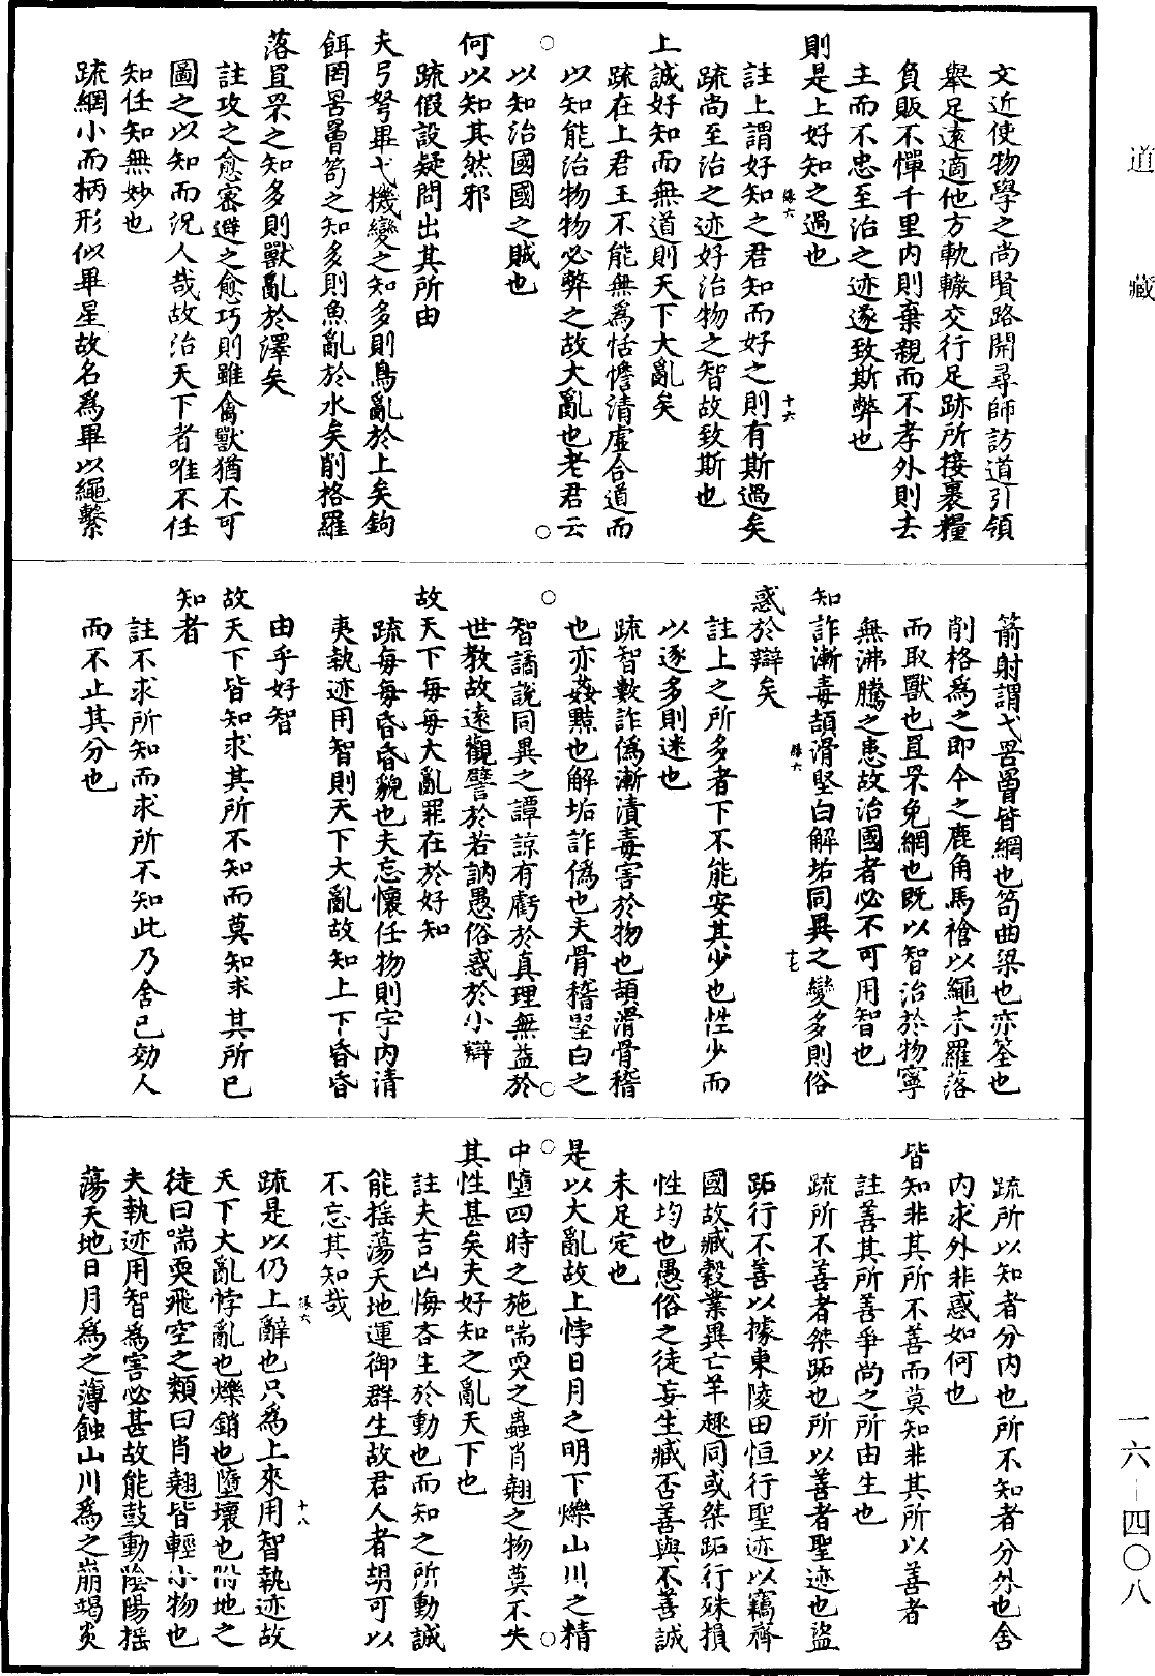 道藏
文近使物學之尚賢路開尋師訪道引領
舉足遠適他方軌轍交行足跡所接裹糧
負販不憚千里內則棄親而不孝外則去
主而不忠至治之迹遂致斯弊也
則是上好知之過也
註上謂好知之君知而好之則有斯過矣
疏尚至治之迹好治物之智故致斯也
上誠好知而無道則天下大亂矣
疏在上君王不能無為恬憺清虛合道而
以知能治物物必弊之故大亂也老君云
以知治國國之賊也
何以知其然邪
疏假設疑問出其所由
夫弓弩畢弋機變之知多則鳥亂於上矣鉤
餌罔罟罾笱之知多則魚亂於水矣削格羅
落罝罘之知多則獸亂於澤矣
註攻之愈密避之愈巧則雖禽獸猶不可
圖之以知而況人哉故治天下者唯不任
知任知無妙也
疏網小而柄形似畢星故名為畢以繩繫
箭射謂弋罟罾皆網也笱曲梁也亦筌也
削格為之即今之鹿角馬槍以繩木羅落
而取獸也罝罘兔網也既以智治於物寧
無沸騰之患故治國者必不可用智也
知詐漸毒頡滑堅白解垢同異之變多則俗
惑於辯矣
註上之所多者下不能安其少也性少而
以逐多則迷也
疏智數詐偽漸漬毒害於物也頡滑骨稽
也亦姦黠也解垢詐偽也夫骨稽堅白之
智譎詭同異之譚諒有虧於真理無益於
世教故遠觀譬於若訥愚俗惑於小辯
故天下每每大亂罪在於好知
疏每每昏昏貌也夫忘懷任物則宇內清
夷執迹用智則天下大亂故知上下昏昏
由乎好智
故天下皆知求其所不知而莫知求其所已
知者
註不求所知而求所不知此乃舍己効人
而不止其分也
疏所以知者分內也所不知者分外也舍
內求外非惑如何也
皆知非其所不善而莫知非其所以善者
註善其所善爭尚之所由生也
疏所不善者桀跖也所以善者聖迹也盜
跖行不善以據東陵田恒行聖迹以竊齊
國故臧穀業異亡羊趣同或桀跖行殊損
性均也愚俗之徒妄生臧否善與不善誠
未足定也
是以大亂故上悖日月之明下爍山川之精
中墮四時之施喘耎之蟲肖翹之物莫不失
其性甚矣夫好知之亂天下也
註夫吉凶悔吝生於動也而知之所動誠
能搖蕩天地運御群生故君人者胡可以
不忘其知哉
疏是以仍上辭也只為上來用智執迹故
天下大亂悖亂也爍銷也墮壞也附地之
徒曰喘耎飛空之類曰肖翹皆輕小物也
夫執迹用智為害必甚故能鼓動陰陽搖
蕩天地日月為之薄蝕山川為之崩竭炎
一六－四〇八